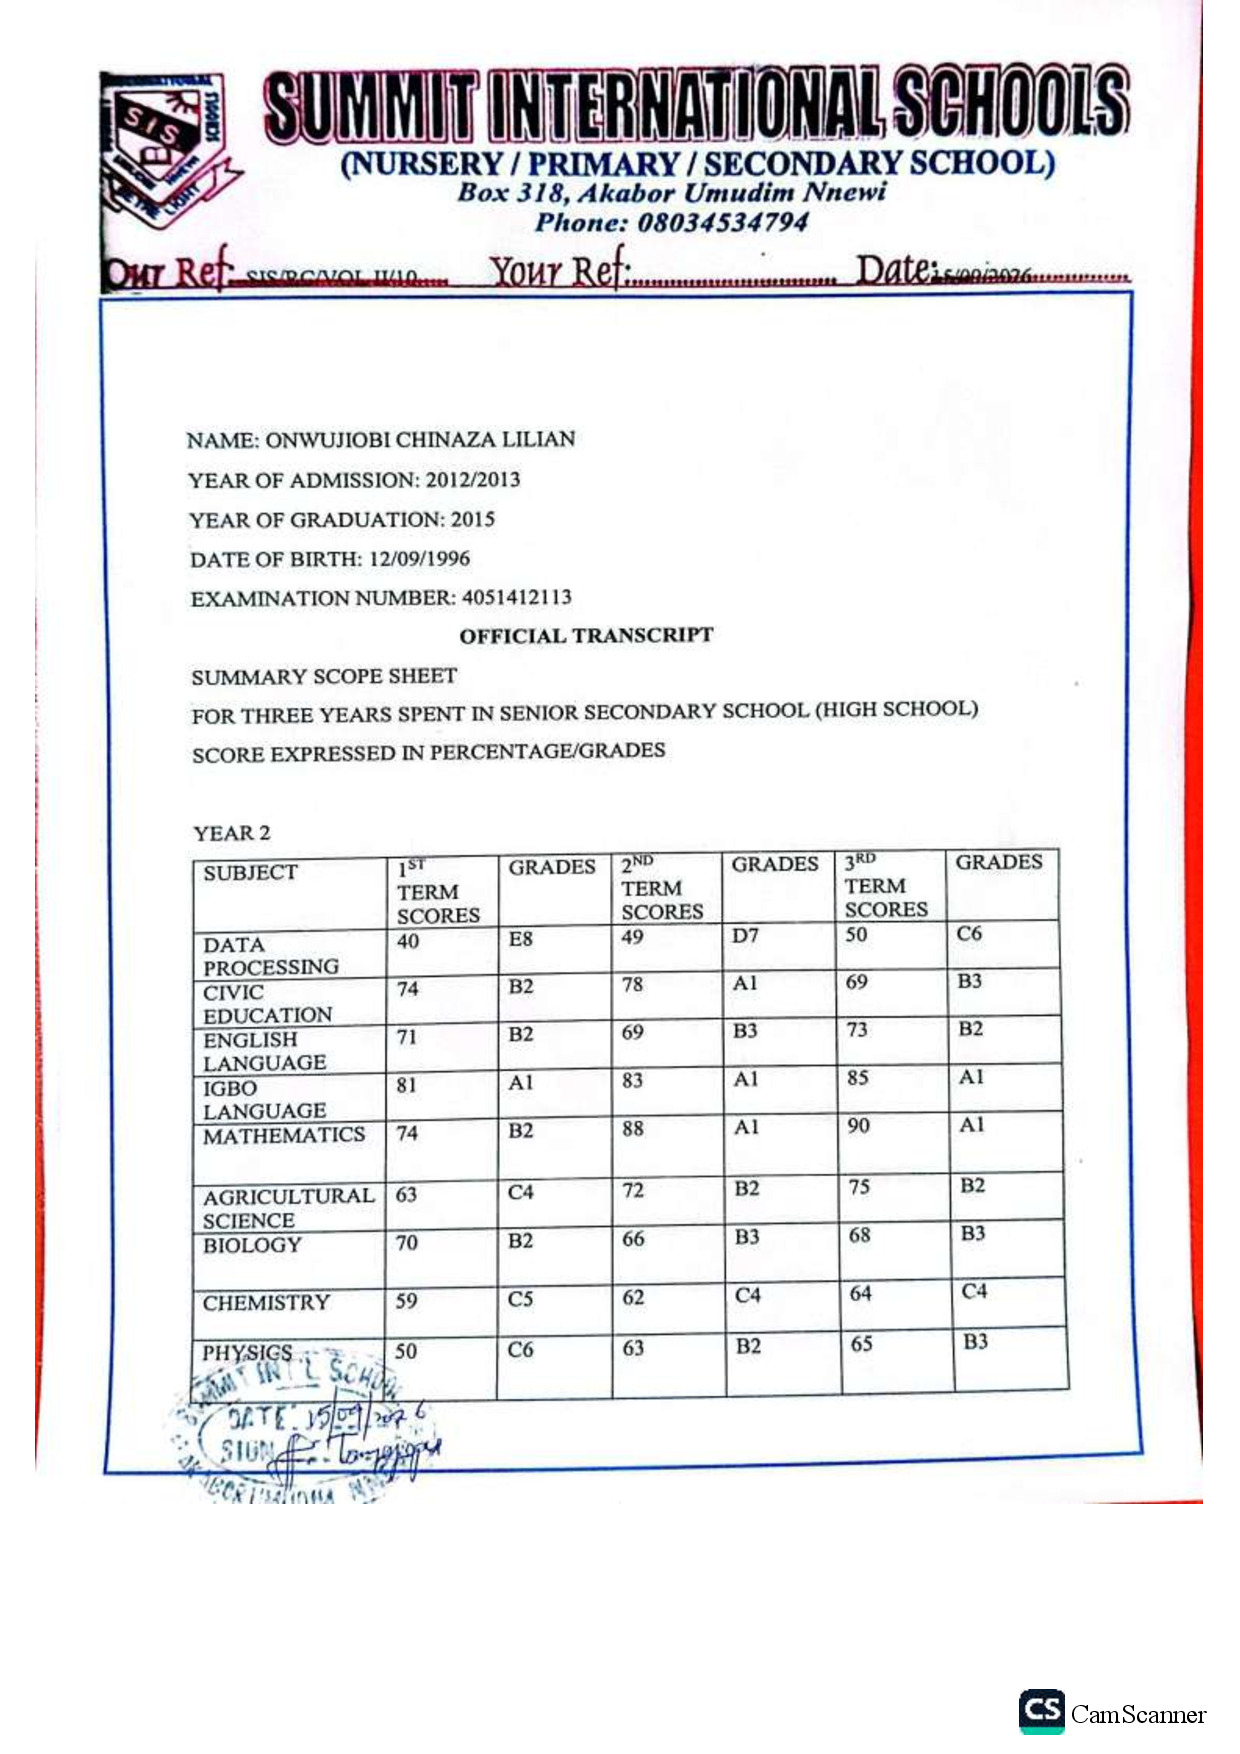 SIS
SCHOOLS
SUMMIT INTERNATIONAL SCHOOLS
(NURSERY / PRIMARY / SECONDARY SCHOOL)
Box 318, Akabor Umudim Nnewi
Phone: 08034534794
Our Ref: SIS/RC/VOL II/10 Your Ref: Date: 15/09/2026
NAME: ONWUJIOBI CHINAZA LILIAN
YEAR OF ADMISSION: 2012/2013
YEAR OF GRADUATION: 2015
DATE OF BIRTH: 12/09/1996
EXAMINATION NUMBER: 4051412113
OFFICIAL TRANSCRIPT
SUMMARY SCOPE SHEET
FOR THREE YEARS SPENT IN SENIOR SECONDARY SCHOOL (HIGH SCHOOL)
SCORE EXPRESSED IN PERCENTAGE/GRADES
YEAR 2
SUBJECT 1ST TERM SCORES GRADES 2ND TERM SCORES GRADES 3RD TERM SCORES GRADES
DATA PROCESSING 40 E8 49 D7 50 C6
CIVIC EDUCATION 74 B2 78 A1 69 B3
ENGLISH LANGUAGE 71 B2 69 B3 73 B2
IGBO LANGUAGE 81 A1 83 A1 85 A1
MATHEMATICS 74 B2 88 A1 90 A1
AGRICULTURAL SCIENCE 63 C4 72 B2 75 B2
BIOLOGY 70 B2 66 B3 68 B3
CHEMISTRY 59 C5 62 C4 64 C4
PHYSICS 50 C6 63 B2 65 B3
SUMMIT INT'L SCHOOL
DATE: 15/09/2026
SIGN
CS CamScanner